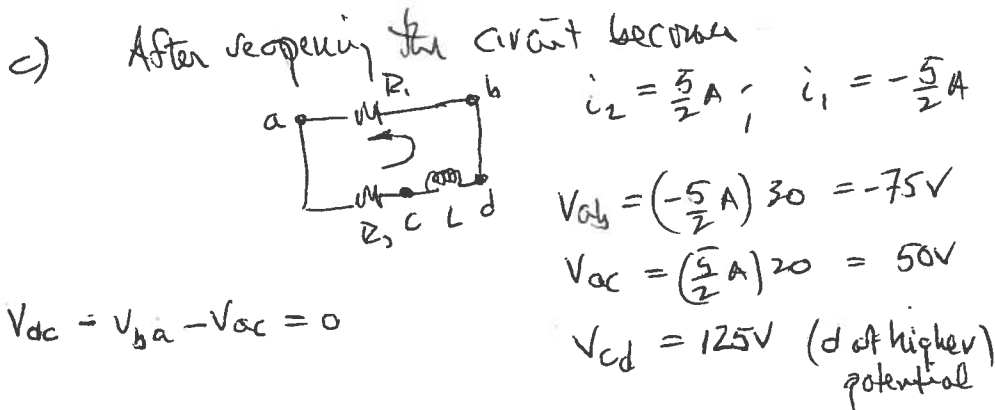 c) After reopening the circuit becomes
i₂ = 5/2 A ; i₁ = -5/2 A
R₁
a
b
R₂ c L d
Vab = (-5/2 A) 30 = -75V
Vac = (5/2 A) 20 = 50V
Vdc - Vba - Vac = 0
Vcd = 125V (d at higher)
potential